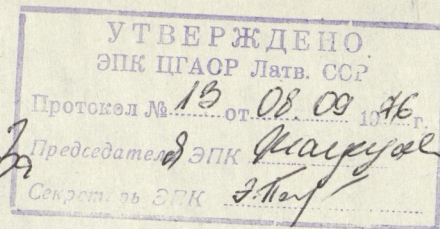 УТВЕРЖДЕНО
ЭПК ЦГАОР Латв. ССР
Протокол № 13 от 08.09 1976 г.
Председатель ЭПК
Секретарь ЭПК